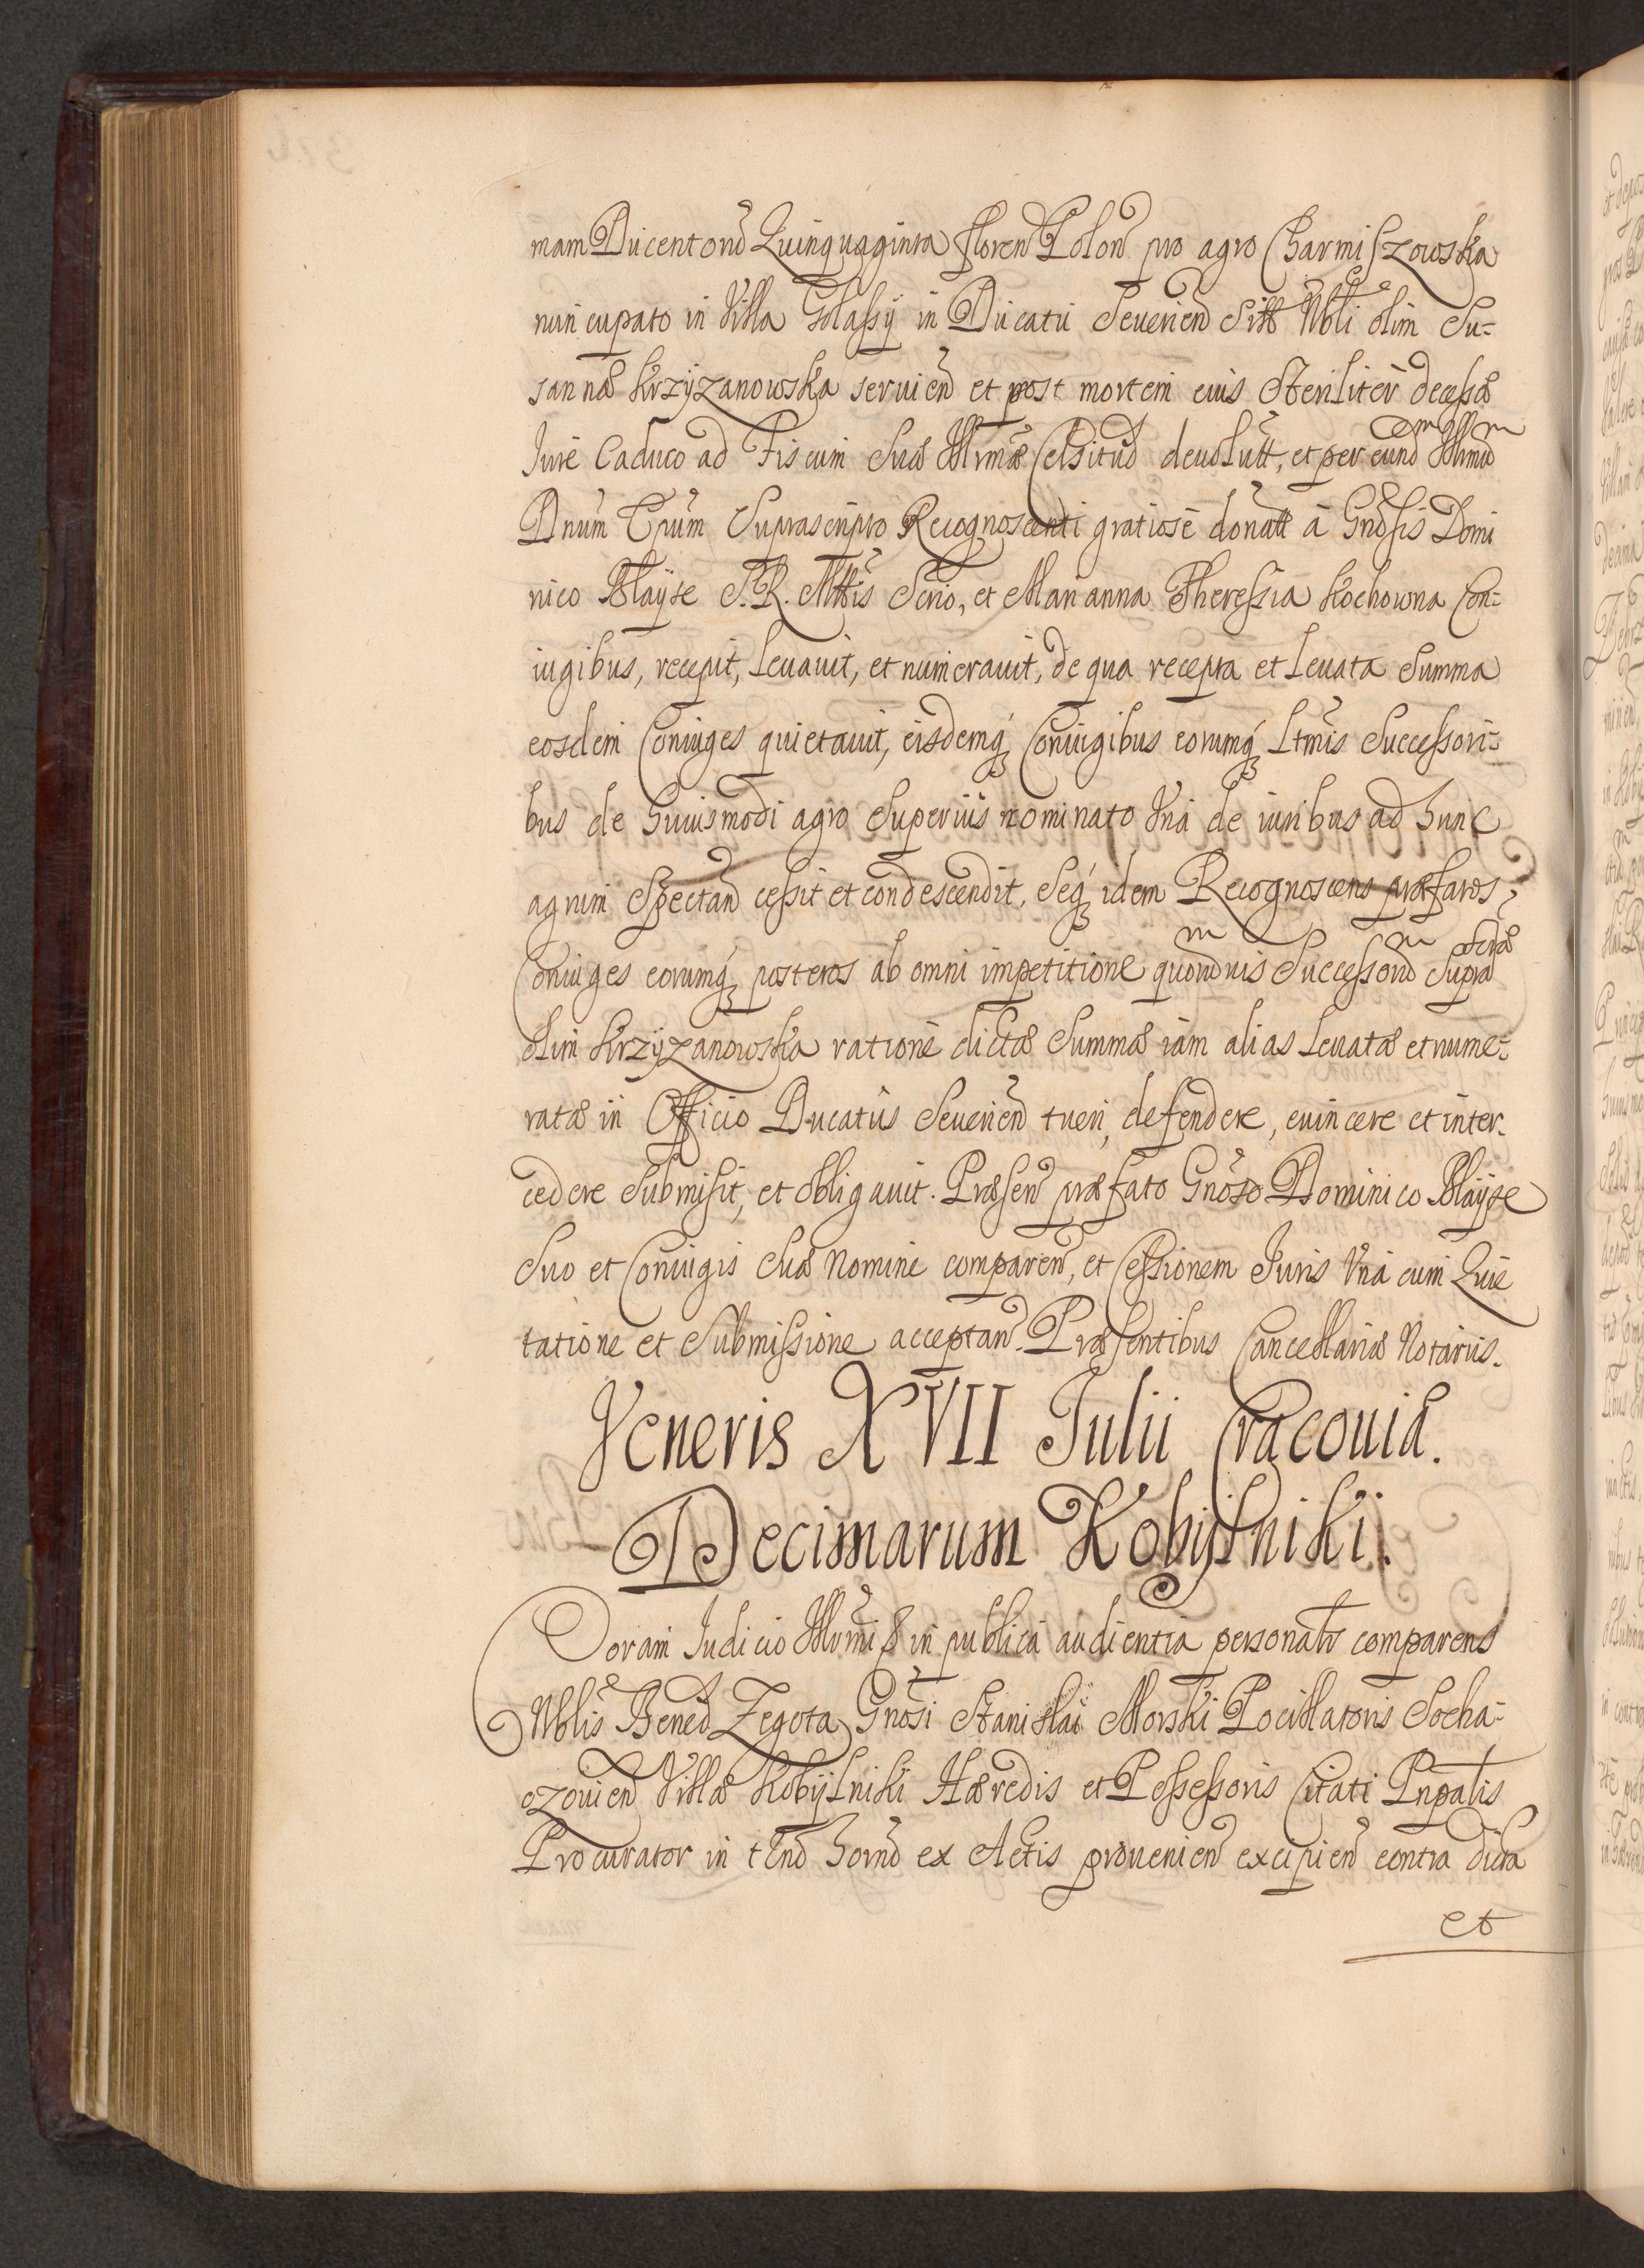 mam Ducentorũ Quinquaginta Floreñ Poloñ pro agro Charmiszowska
nuncupato in Villa Golassy in Ducatu Severieñ Sitt Nbli olim Su-
sannæ Krzyzanowska servieñ et post mortem eius steriliter decessæ
Jure Caduco ad Fiscum Suæ Illrmæ Celsitud devolutt, et per eund Illrmũ
Dnum Epum Suprascripto Recognoscenti gratiose donatt à Gnosis Domi
nico Blayse S. R. Mttis Scrio, et Marianna Theressia Kochowna Con-
iugibus, recepit, levavit, et numeravit, de qua recepta et levata Summa
eosdem Coniuges quietavit, eisdemq Coniugibus eorumq Ltmis Successori-
bus de huiusmodi agro Superius nominato Vná de iuribus ad hunc
agrum Spectañ cessit et condescendit, Seq idem Recognoscens præfatos
Coniuges eorumq posteros ab omni impetitione quorumvis Successorũ Supra
scrtæ
olim Krzyzanowska ratione dictæ Summæ iam alias levatæ et nume-
ratæ in Officio Ducatus Severieñ tueri, defendere, evincere et inter-
cedere Submisit, et obligavit. Præseñ præfato Gnoso Dominico Blayse
Suo et Coniugis Suæ Nomine compareñ, et Cessionem Juris Vná cum Quie
tatione et Submissione acceptañ. Præsentibus Cancellariæ Notariis.
Veneris XVII Julii Cracoviæ.
Decimarum Kobylniki.
Coram Judicio Illrmi S in publica audientia personatr comparens
Nblis Bened Zegota Gnosi Stanislai Morski Pocillatoris Socha-
czovieñ Villæ Kobylniki Hæredis et Possessoris Citati Prpalis
Procurator in tno horno ex Actis provenieñ excipieñ contra dicta
et